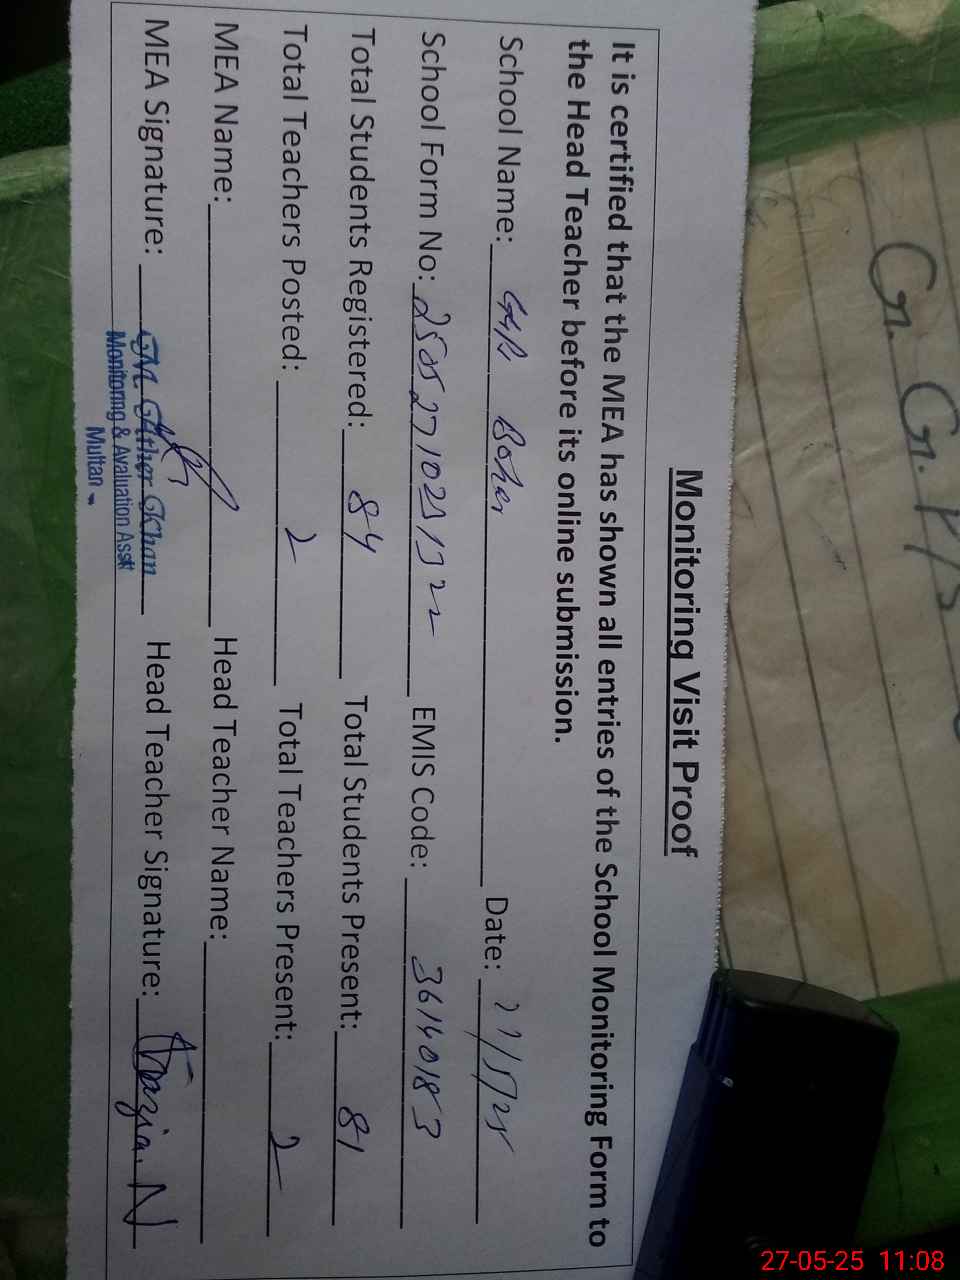 Monitoring Visit Proof
It is certified that the MEA has shown all entries of the School Monitoring Form to
the Head Teacher before its online submission.
School Name: Date: 27/5/25
School Form No: EMIS Code: 36140183
Total Students Registered: 84 Total Students Present: 81
Total Teachers Posted: 2 Total Teachers Present: 2
MEA Name: Head Teacher Name:
MEA Signature: Khan Head Teacher Signature: Nazia. N
Monitoring & Avaluation Asstt
Multan
G. G. P/S
27-05-25 11:08